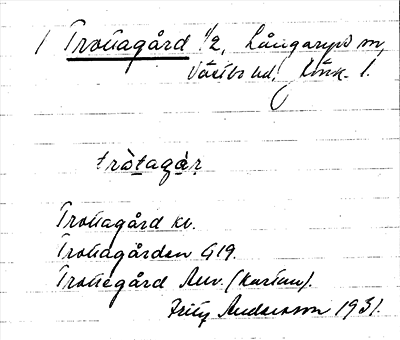 1 Trottagård 1/2, Långaryds sn,
Västbo hd, Jönk. l.
tròtagàr
Trottagård kv.
Trottagården G19.
Trottegård Auv. (kartan).
Fritz Andersson 1931.